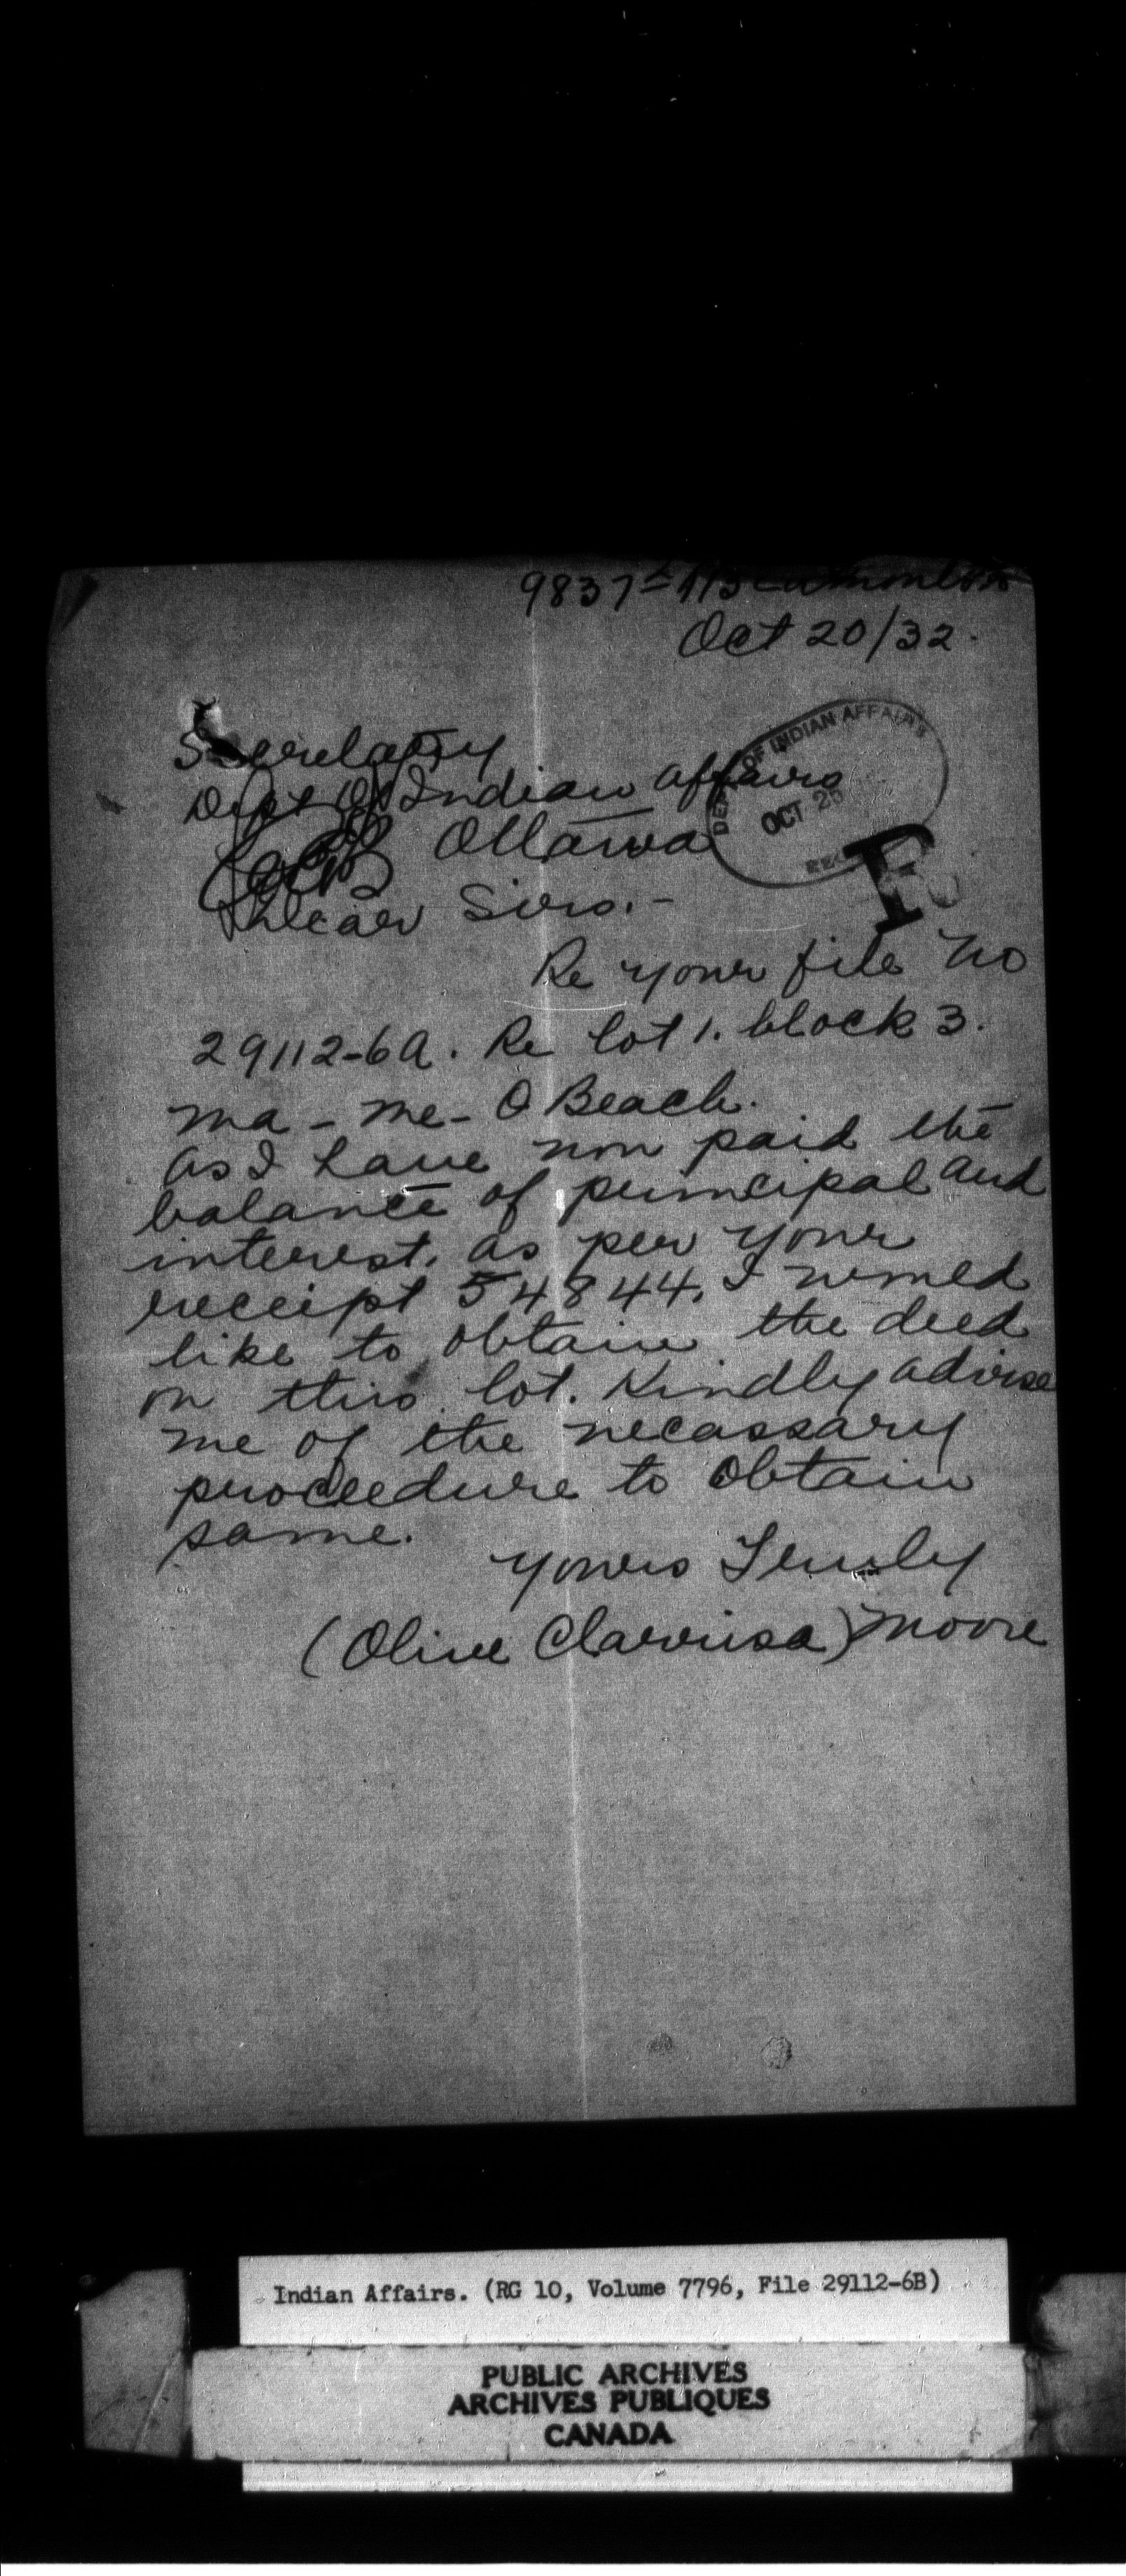 9837-113 Edmonton
Oct 20/32.
DEPT. OF INDIAN AFFAIRS
OCT 25
Secretary
Dept Of Indian Affairs
Ottawa
Dear Sirs.-
Re your file No
29112-6A. Re lot 1. block 3.
Ma-Me-O Beach.
As I have now paid the
balance of principal and
interest, as per your
receipt 54844. I would
like to obtain the deed
on this lot. Kindly advise
me of the necassary
proceedure to obtain
same.
Yours Truly
(Olive Clarrisa) Moore
Indian Affairs. (RG 10, Volume 7796, File 29112-6B)
PUBLIC ARCHIVES
ARCHIVES PUBLIQUES
CANADA